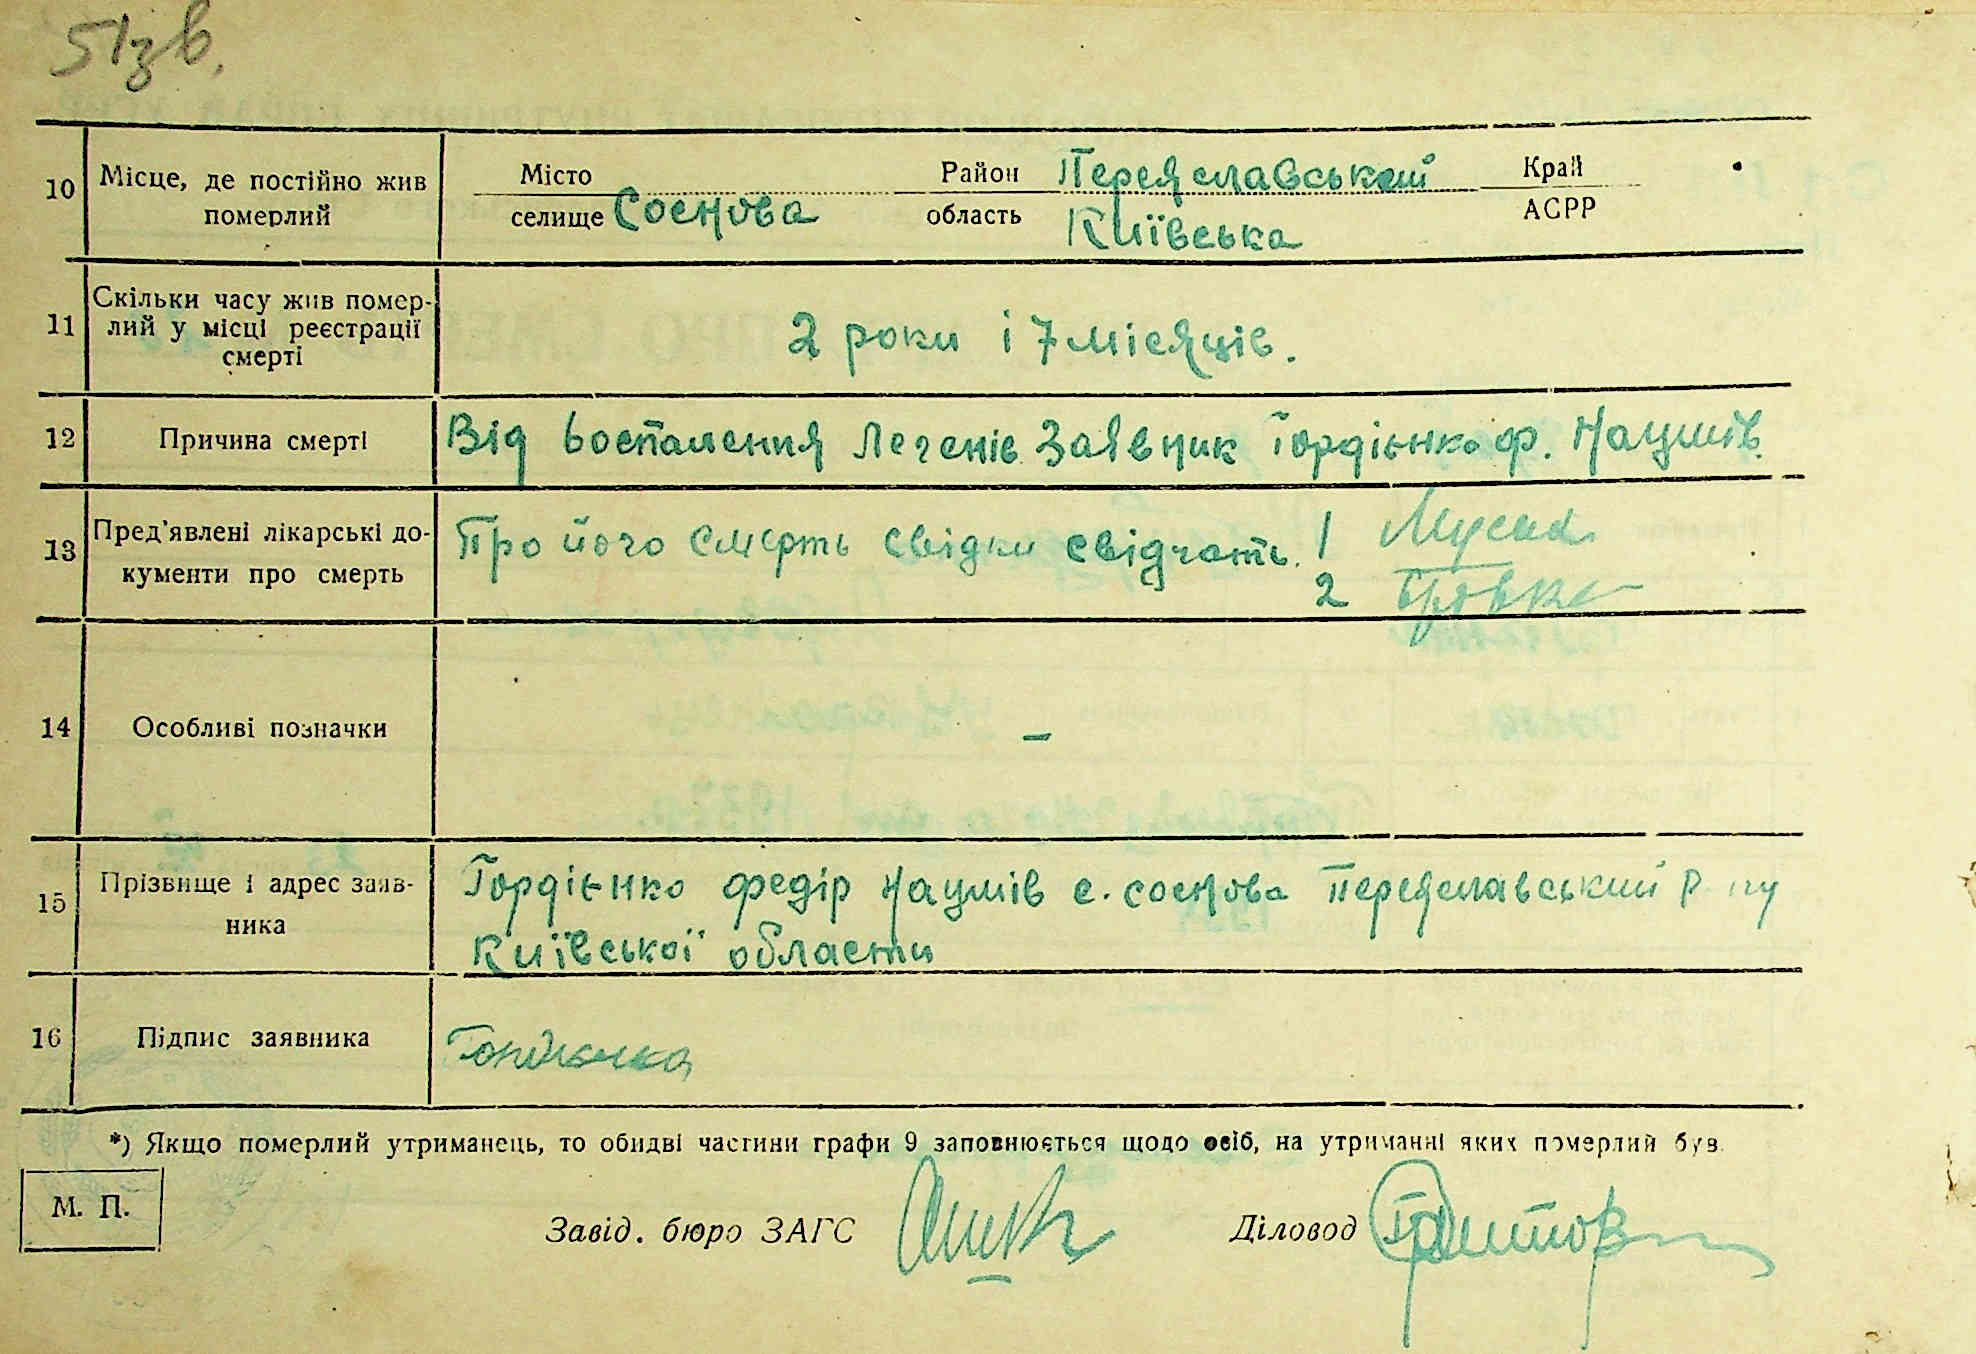 51зв.
10 Місце, де постійно жив померлий
Місто Район Переяславський Край
селище Соснова область Київська АСРР
11 Скільки часу жив помер-
лий у місці реєстрації
смерті
2 роки і 7 місяців.
12 Причина смерті Від воспаления легенів. Заявник Гордієнко Ф. Наумів.
13 Пред'явлені лікарські до-
кументи про смерть
Про його смерть свідки свідчать. 1
2
14 Особливі позначки –
15 Прізвище і адрес заяв-
ника
Гордієнко Федір Наумів с. Соснова Переяславський р-ну
Київської области
16 Підпис заявника
*) Якщо померлий утриманець, то обидві частини графи 9 заповнюється щодо осіб, на утриманні яких померлий був.
М. П.
Завід. бюро ЗАГС Діловод